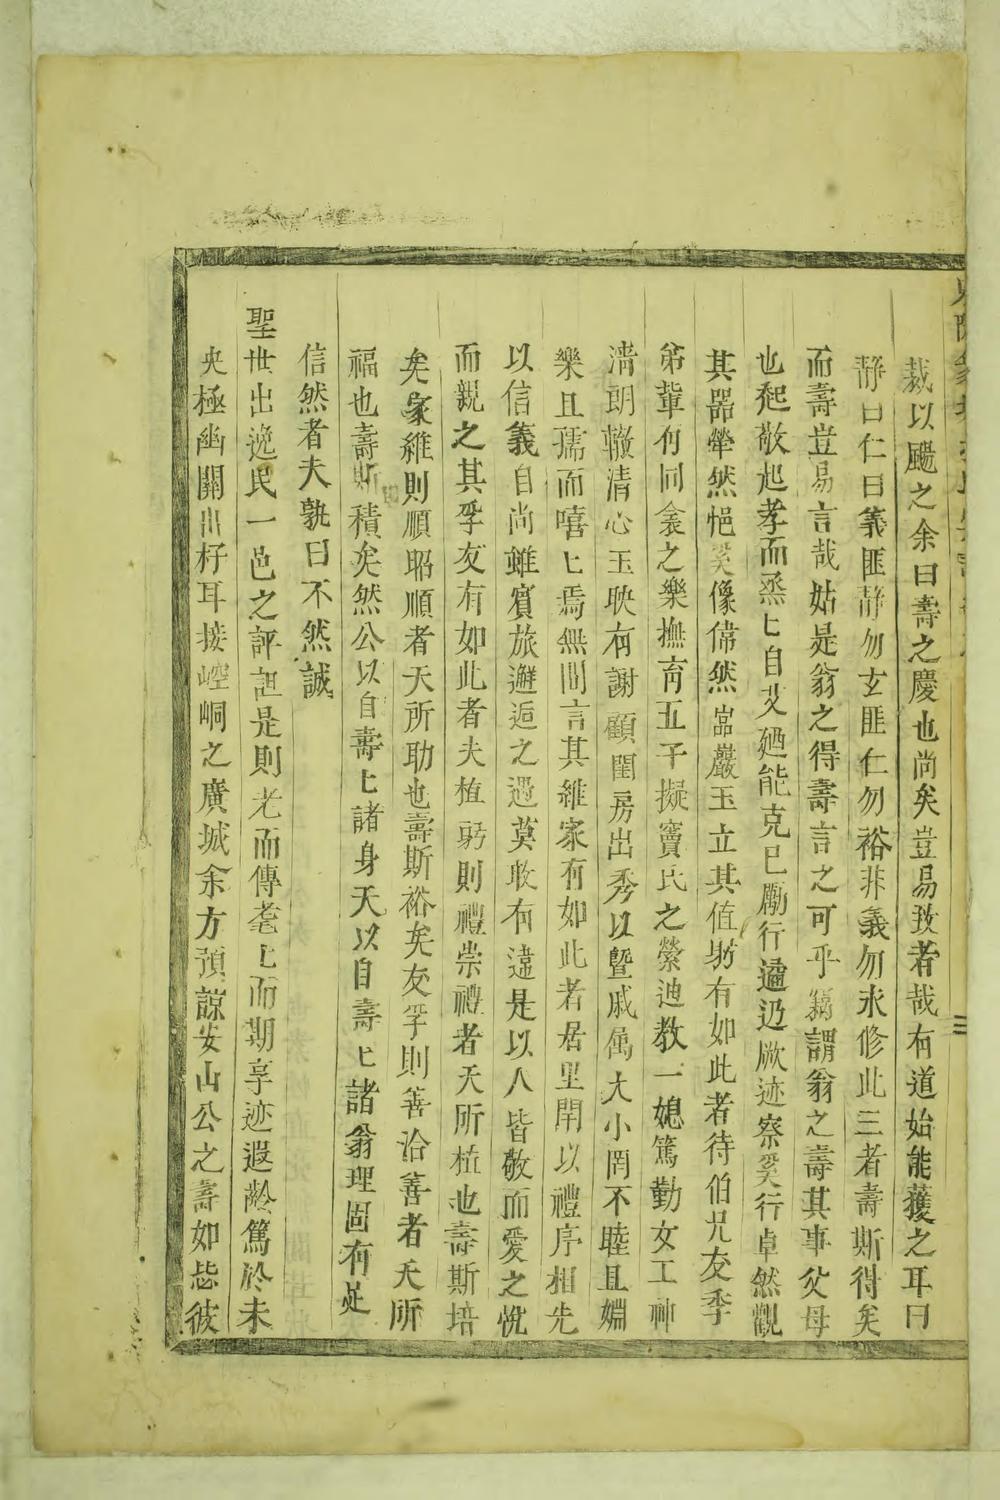 裁以颺之余曰壽之慶也尚矣豈易致者哉有道始能獲之耳曰
靜曰仁曰義匪靜勿玄匪仁勿裕非義勿永修此三者壽斯得矣
而壽豈易言哉姑是翁之得壽言之可乎竊謂翁之壽其事父母
也起敬起孝而烝匕自艾廼能克已勵行邇迈厥迹察奚行卓然觀
其器犖然悒奚像偉然嵓巖玉立其值塲有如此者待伯兄友季
弟輩有同衾之樂撫育五子擬竇氏之縈迪教一媳篤勤女工神
清朗徹清心玉映有謝顧閨房出秀以曁戚属大小罔不睦且婣
樂且孺而嘻匕焉無間言其維家有如此者居里閈以禮序相先
以信義自尚雖賓旅邂逅之遇莫敢有違是以人皆敬而愛之悅
而親之其孚友有如此者夫植躬則禮崇禮者天所植也壽斯培
矣家維則順昭順者天所助也壽斯裕矣友孚則善洽善者天所
福也壽斯積矣然公以自壽匕諸身天以自壽匕諸翁理固有足
信然者夫孰曰不然誠
聖世出逸民一邑之評詎是則光而傳耄匕而期享迹遐齡篤於未
央極幽關出杍耳接崆峒之廣城余方預諒安山公之壽如㤀彼